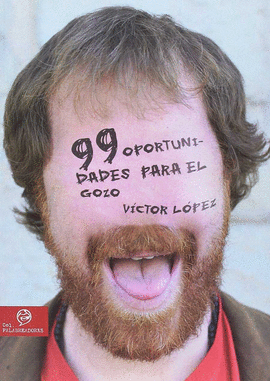 99 OPORTUNI-
DADES PARA EL
GOZO
VÍCTOR LÓPEZ
Ed.
PALABREADORES